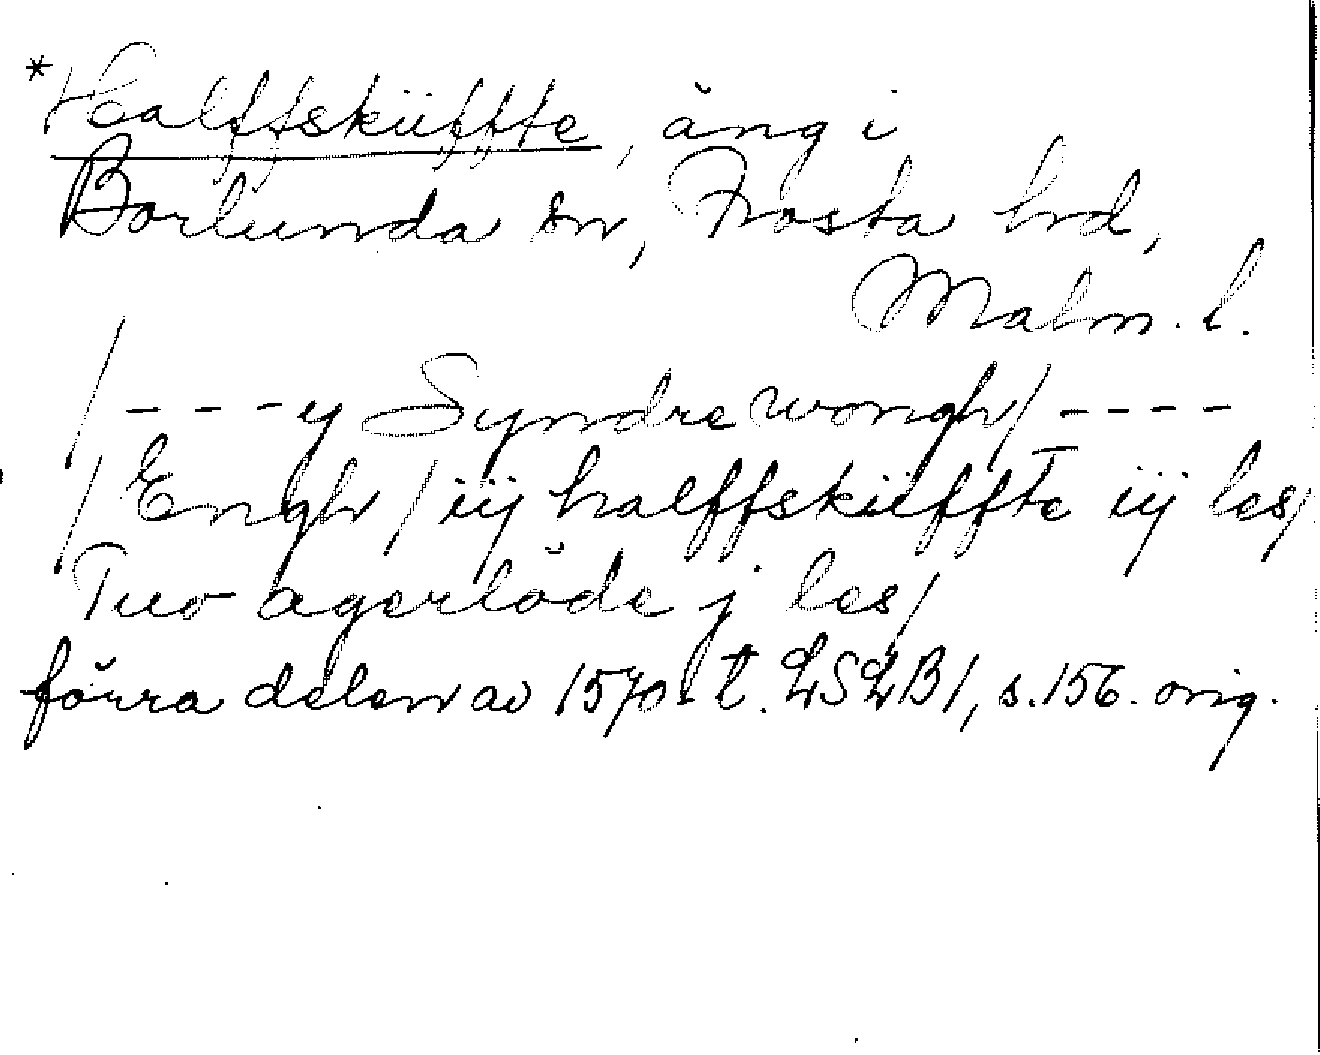 *Halffskiffte, äng i
Borlunda sn, Frosta hd,
Malm. l.
/ - - - y Syndre wongh/ - - - -
/ Engh / iij halffskiffte iij les/
Tuo agerlöde j les/
förra delen av 1570-t. LSLB1, s.156. orig.